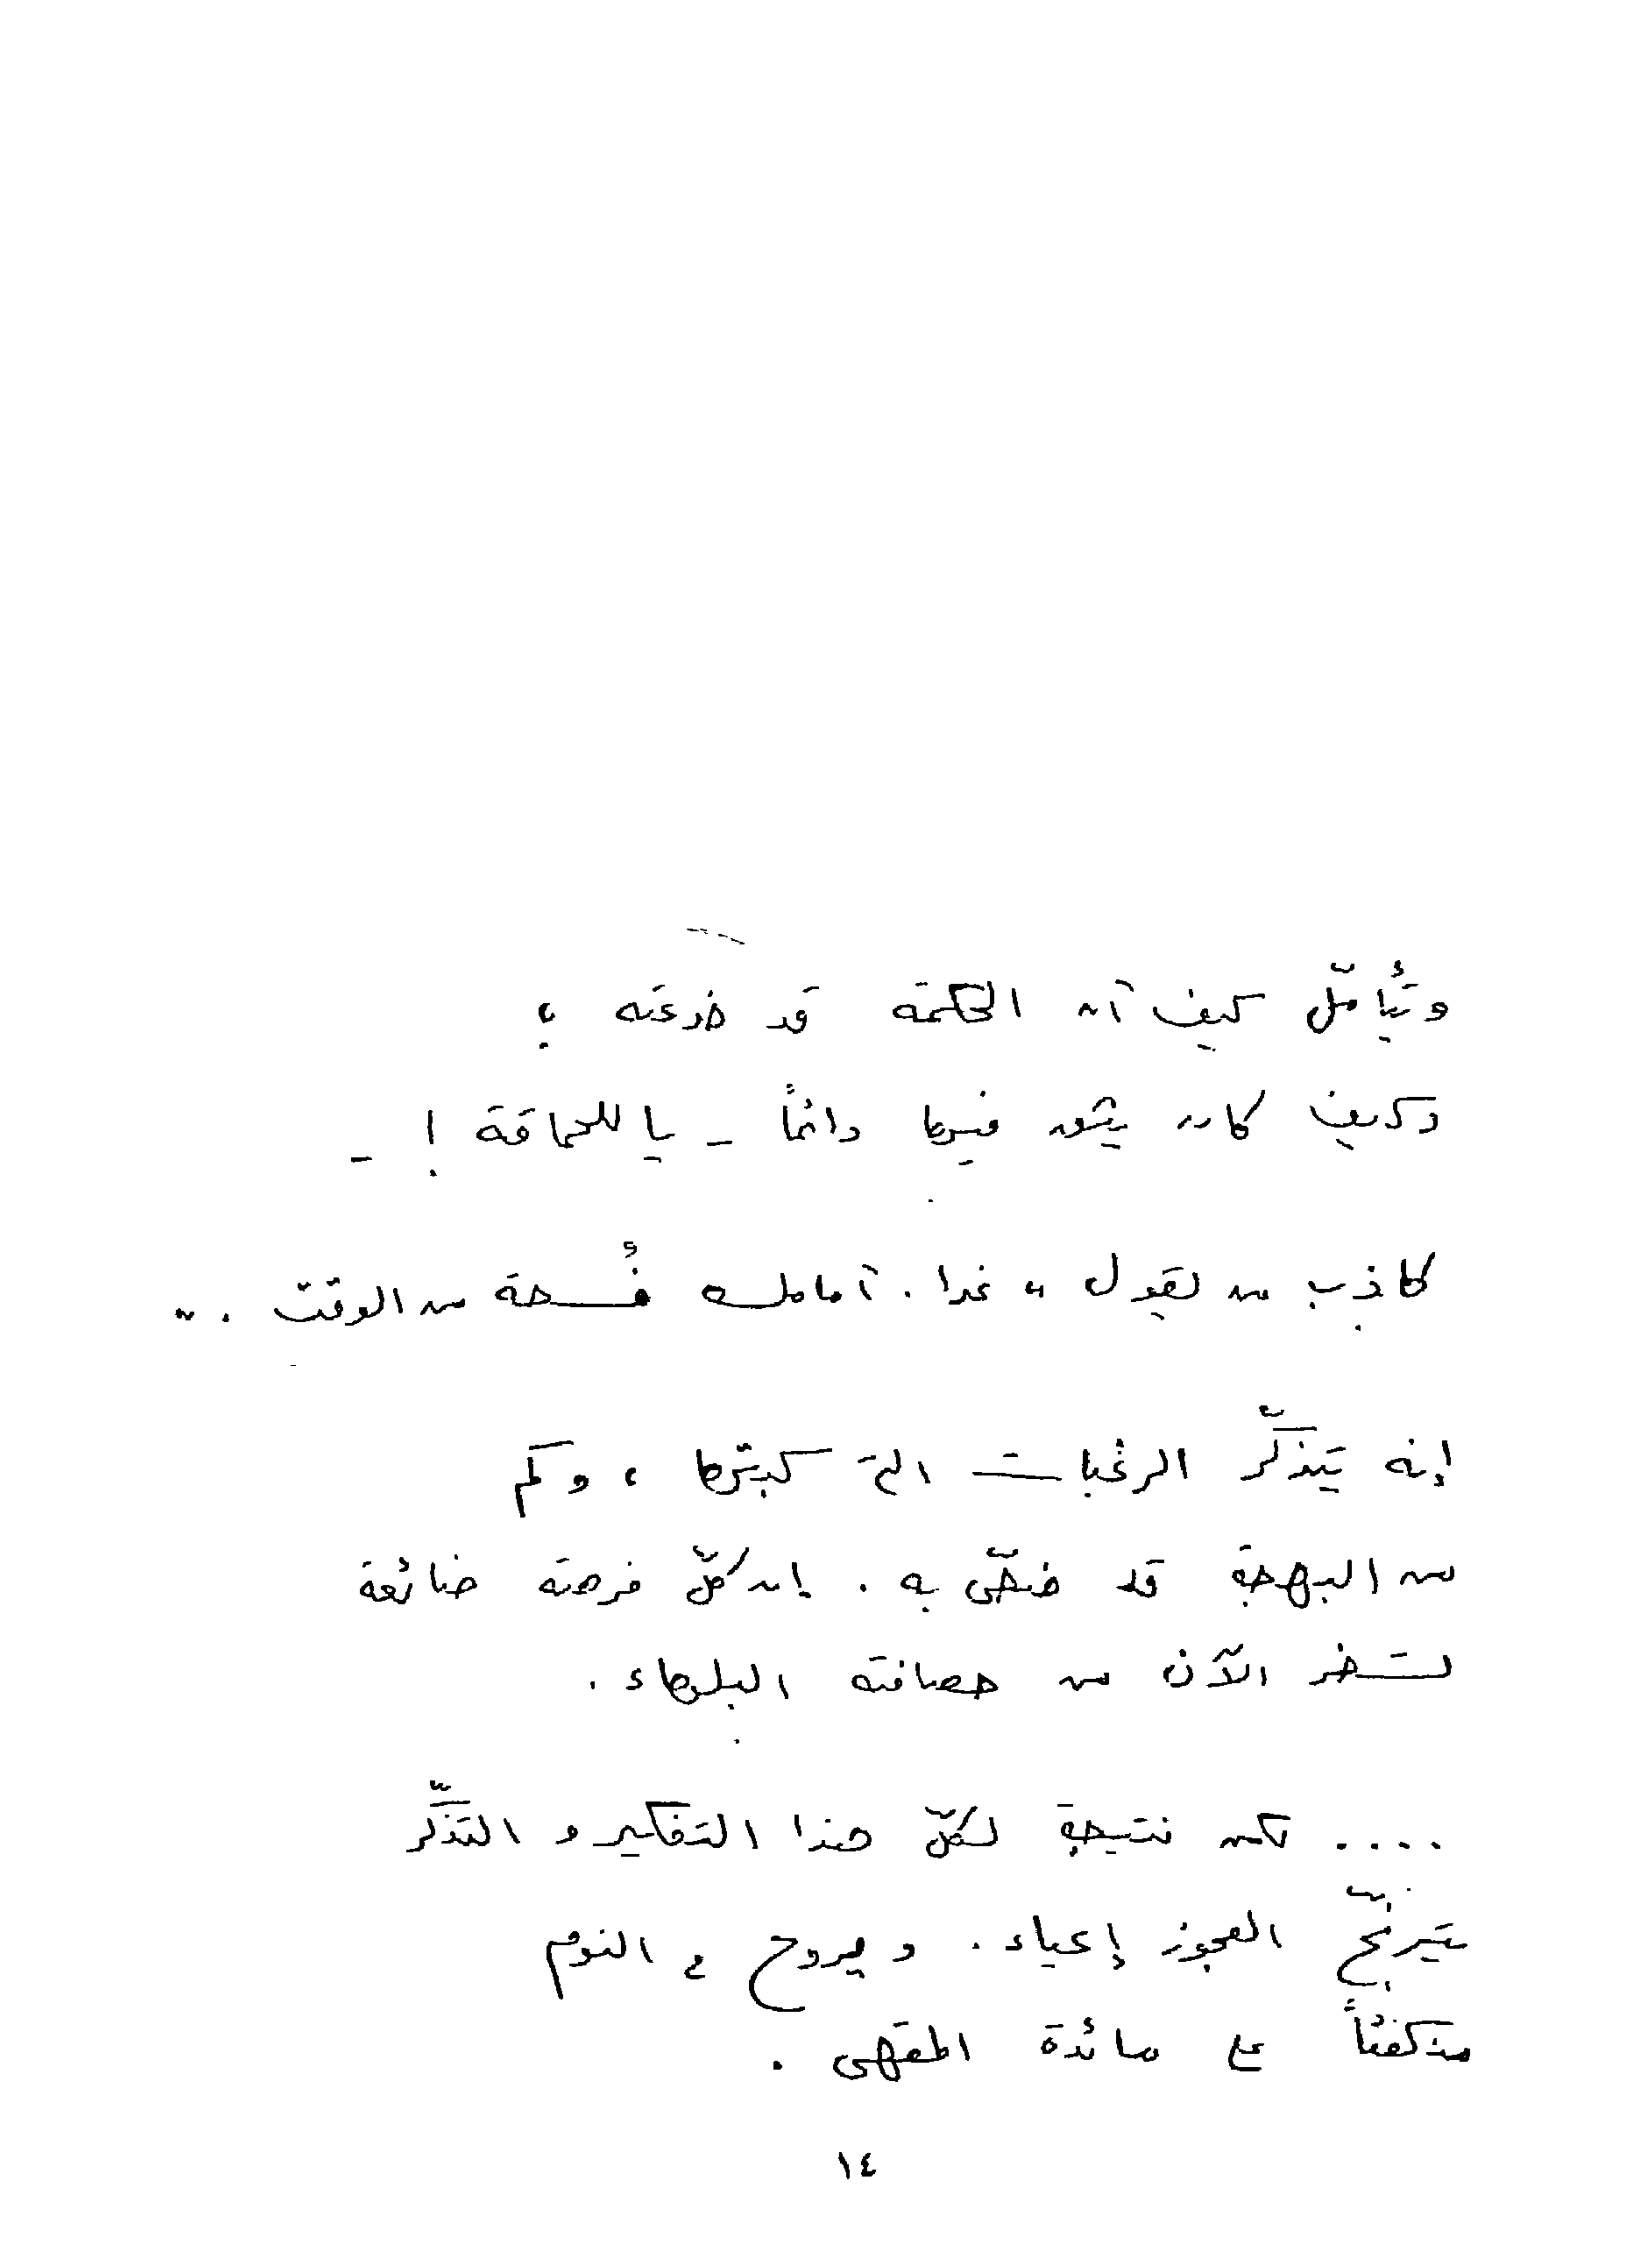 ويتأمّل كيف أن الحكمة قد خدعته ؛
وكيف كان يثق فيها دائماً - يا للحماقة ! -
كاذب من يقول " غدا . أمامك فُسحة من الوقت . "
إنه يتذكّر الرغبات التي كبتها ، وكم
من البهجة قد ضحّى به . إن كلّ فرصة ضائعة
تسخر الآن من حصافته البلهاء .
.... لكن نتيجة لكلّ هذا التفكير و التذكّر
يترنّح العجوز إعياء . ويروح في النوم
منكفئاً على مائدة المقهى .
١٤